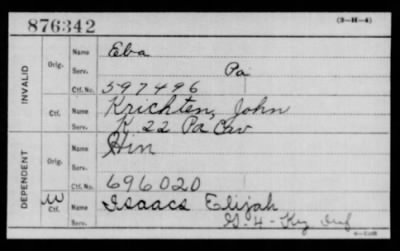 876342 (3-H-4)
INVALID
Orig. Name Eba
Serv. Pa
Ctf. No. 597496
Ctf. Name Krichten, John
Serv. K 22 Pa Cav
DEPENDENT
Orig. Name Hin
Serv.
Ctf. No. 696020
W Ctf. Name Isaacs Elijah
Serv. G-4-Ky Inf